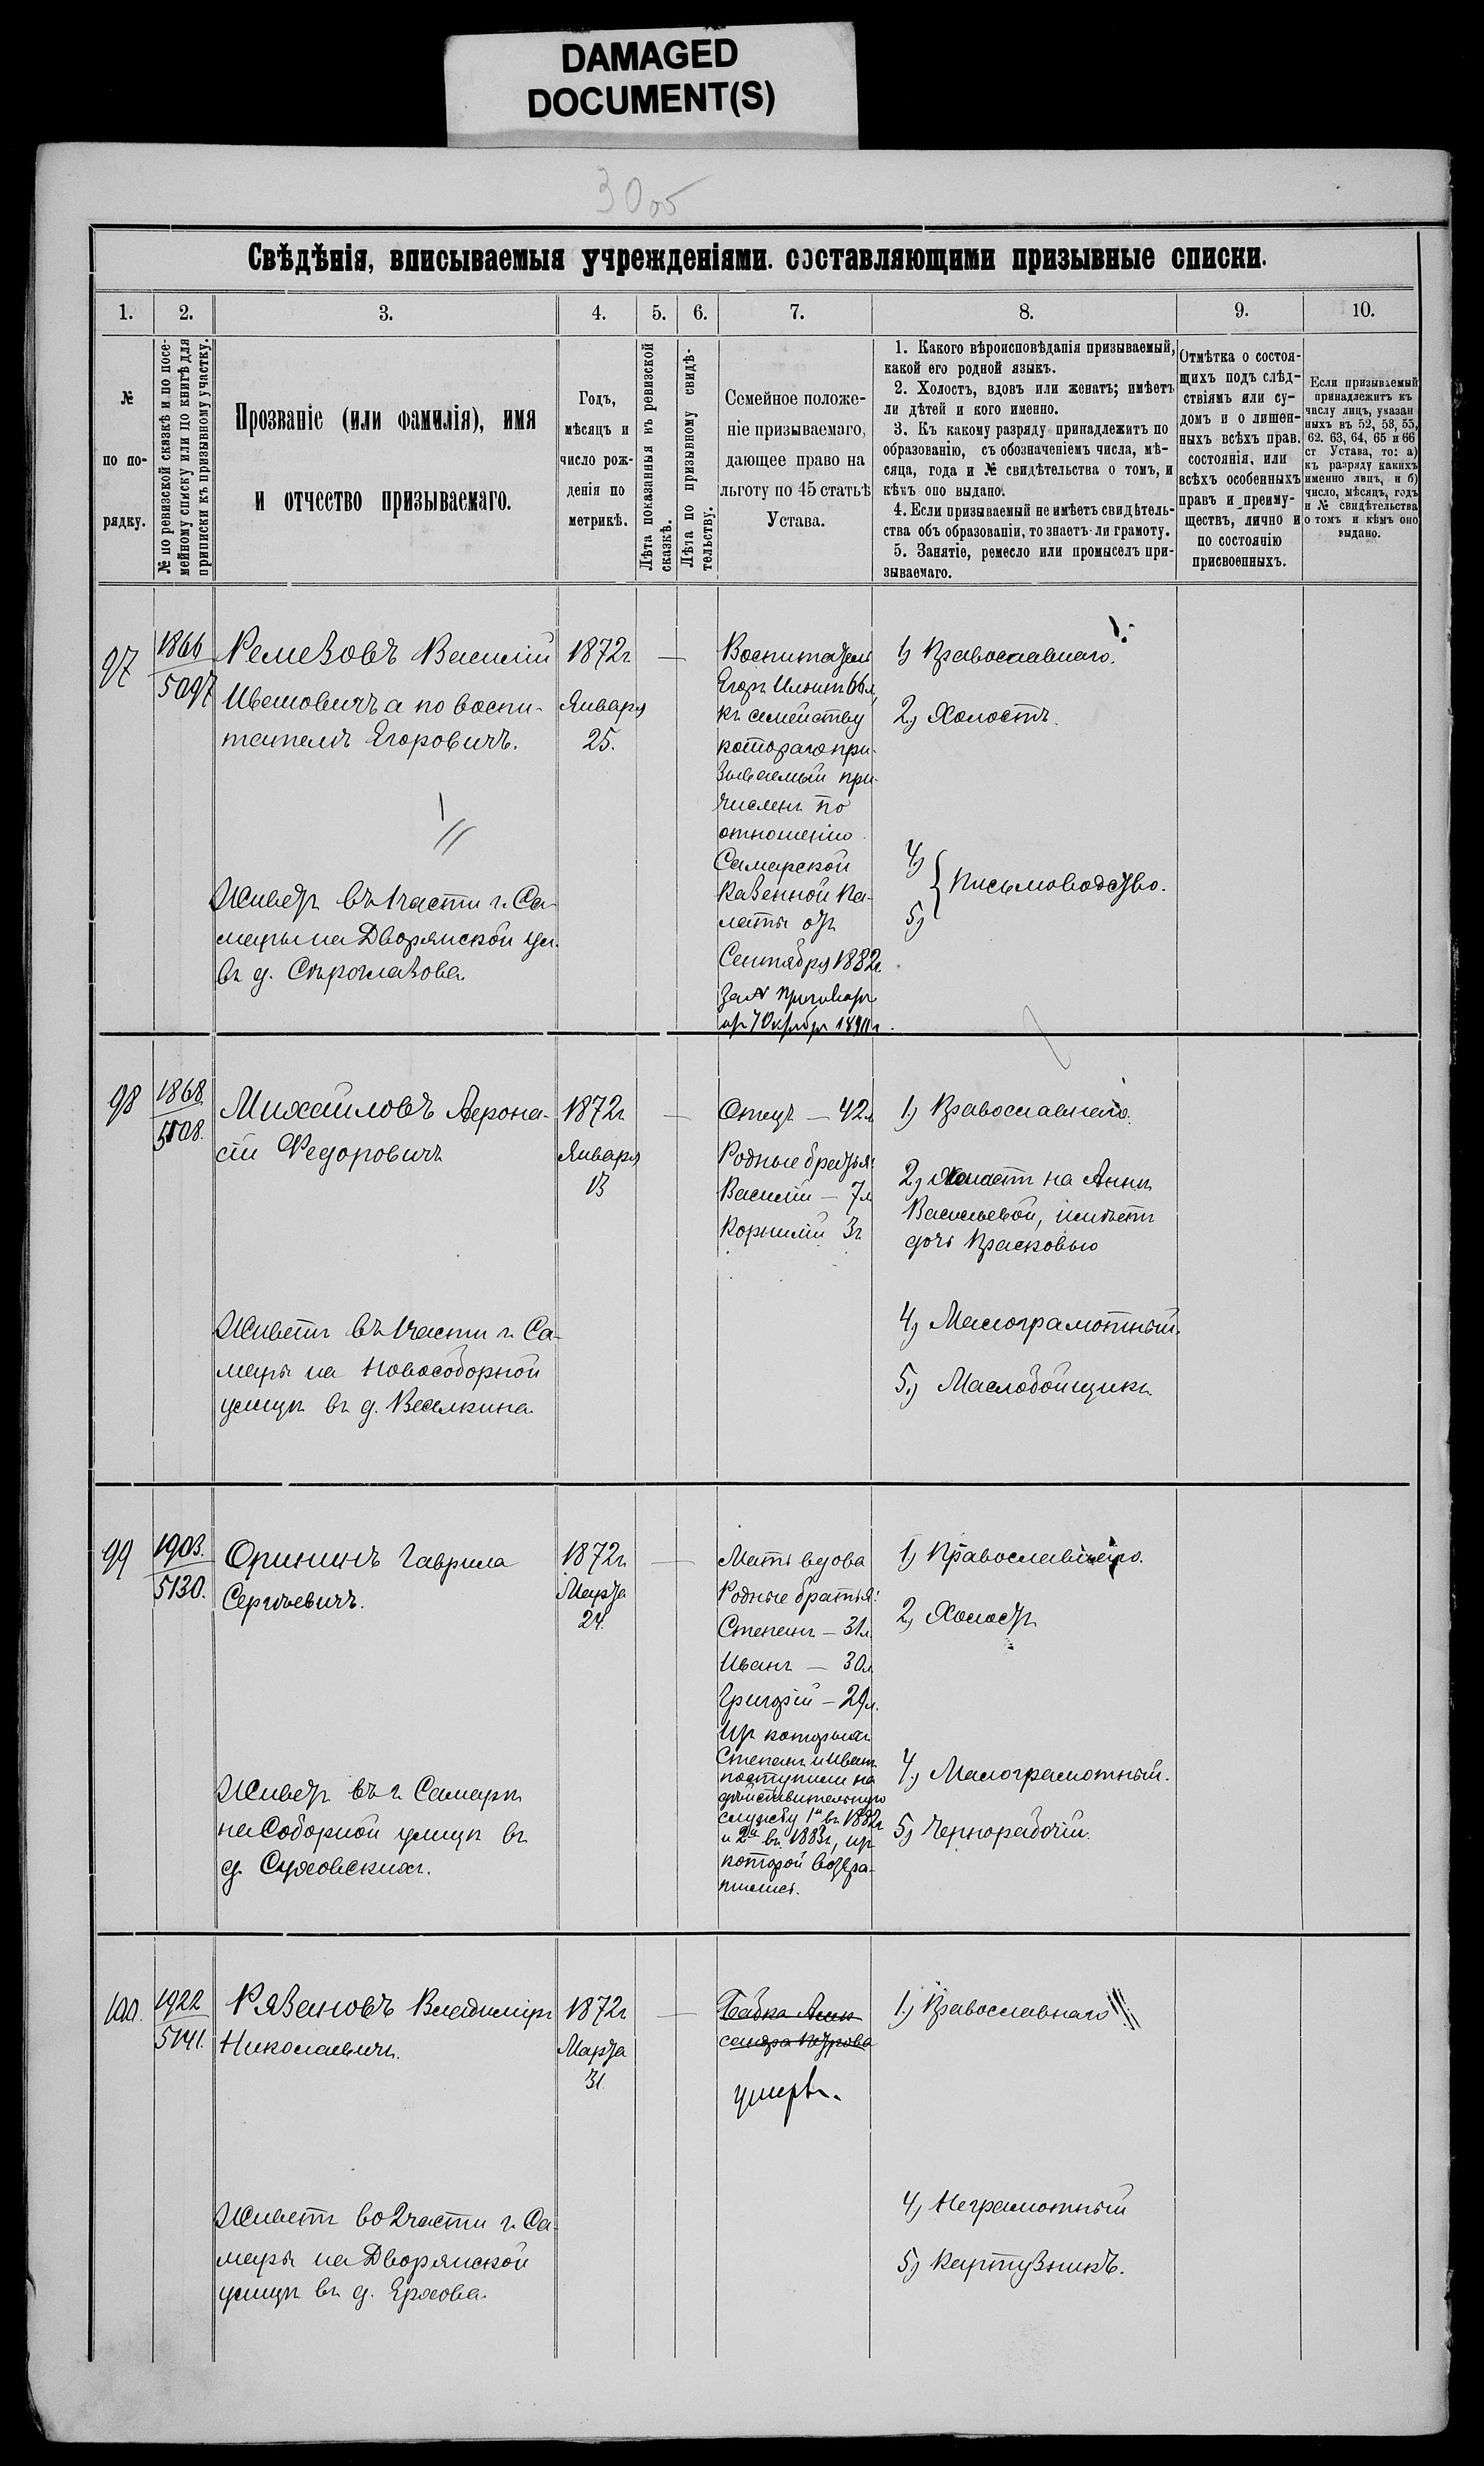 DAMAGED
DOCUMENT(S)
30об
Свѣдѣнія, вписываемыя учрежденіями. составляющими призывные списки.
1. 2. 3. 4. 5. 6. 7. 8. 9. 10.
№
по по-
рядку.
№ по ревизской сказкѣ и по посе-
мейному списку или по книгѣ для
приписки къ призывному участку.
Прозваніе (или фамилія), имя
и отчество призываемаго.
Годъ,
мѣсяцъ и
число рож-
денія по
метрикѣ.
Лѣта показанныя къ ревизской
сказкѣ.
Лѣта по призывному свидѣ-
тельству.
Семейное положе-
ніе призываемаго,
дающее право на
льготу по 45 статьѣ
Устава.
1. Какого вѣроисповѣданія призываемый,
какой его родной языкъ.
2. Холостъ, вдовъ или женатъ; имѣетъ
ли дѣтей и кого именно.
3. Къ какому разряду принадлежитъ по
образованію, съ обозначеніемъ числа, мѣ-
сяца, года и № свидѣтельства о томъ, и
кѣмъ оно выдано.
4. Если призываемый не имѣетъ свидѣтель-
ства объ образованіи, то знаетъ-ли грамоту.
5. Занятіе, ремесло или промыселъ при-
зываемаго.
Отмѣтка о состоя-
щихъ подъ слѣд-
ствіямъ или су-
домъ и о лишен-
ныхъ всѣхъ прав.
состоянія, или
всѣхъ особенныхъ
правъ и преиму-
ществъ, лично и
по состоянію
присвоенныхъ.
Если призываемый
принадлежитъ къ
числу лицъ, указан
ныхъ въ 52, 53, 55,
62. 63, 64, 65 и 66
ст Устава, то: а)
къ разряду какихъ
именно лицъ, и б)
число, мѣсяцъ, годъ
и № свидѣтельства
о томъ и кѣмъ оно
выдано.
97
1866
5097
Ремезовъ Василій
Ивановичъ а по воспи-
тателю Егоровичъ.
Живетъ въ 1 части г. Са-
мары на Дворянской ул.
въ д.
1872г
Января
25.
Воспитатель
Егоръ Ильинъ 66л,
къ семейству
котораго при-
зываемый при-
численъ по
отношенію
Самарской
Казенной Па-
латы отъ
Сентября 1882г.
за №
от 7 Октября
1) Православнаго.
2) Холостъ.
4)
5)
Письмоводство.
98
1868
5108.
Михайловъ Афона-
сій Федоровичъ
Живетъ въ 1 части г. Са-
мары на Новособорной
улицѣ въ д. Веселкина
1872г
Января
13
Отецъ — 42л
Родные братья:
Василій — 7л
Корнилій 3г
1) Православнаго.
2) на Аннѣ
Васильевой, имѣетъ
дочь Прасковью
4) Малограмотный.
5) Маслобойщикъ.
99
1903.
5130.
Орининъ Гаврила
Сергѣевичъ.
Живетъ въ г. Самарѣ
на Соборной улицѣ въ
д. Суховскихъ.
1872г
Марта
24.
Мать вдова
Родные братья:
Степанъ — 31л
Иванъ — 30л
Григорій — 29л.
Изъ которыхъ
Степанъ и Иванъ
поступили на
дѣйствительную
службу 1й въ 1882г
и 2й въ 1883г, изъ
которой возвра-
тились.
1) Православнаго.
2) Холостъ
4) Малограмотный.
5) Чернорабочій.
100.
1922
5141.
Рязановъ Владиміръ
Николаевичъ.
Живетъ во 2 части г. Са-
мары на Дворянской
улицѣ въ д. Ерхова.
1872г
Марта
31
Бабка Алек
сандра Петрова
умерла.
1) Православнаго
4) Неграмотный
5) Картузникъ.